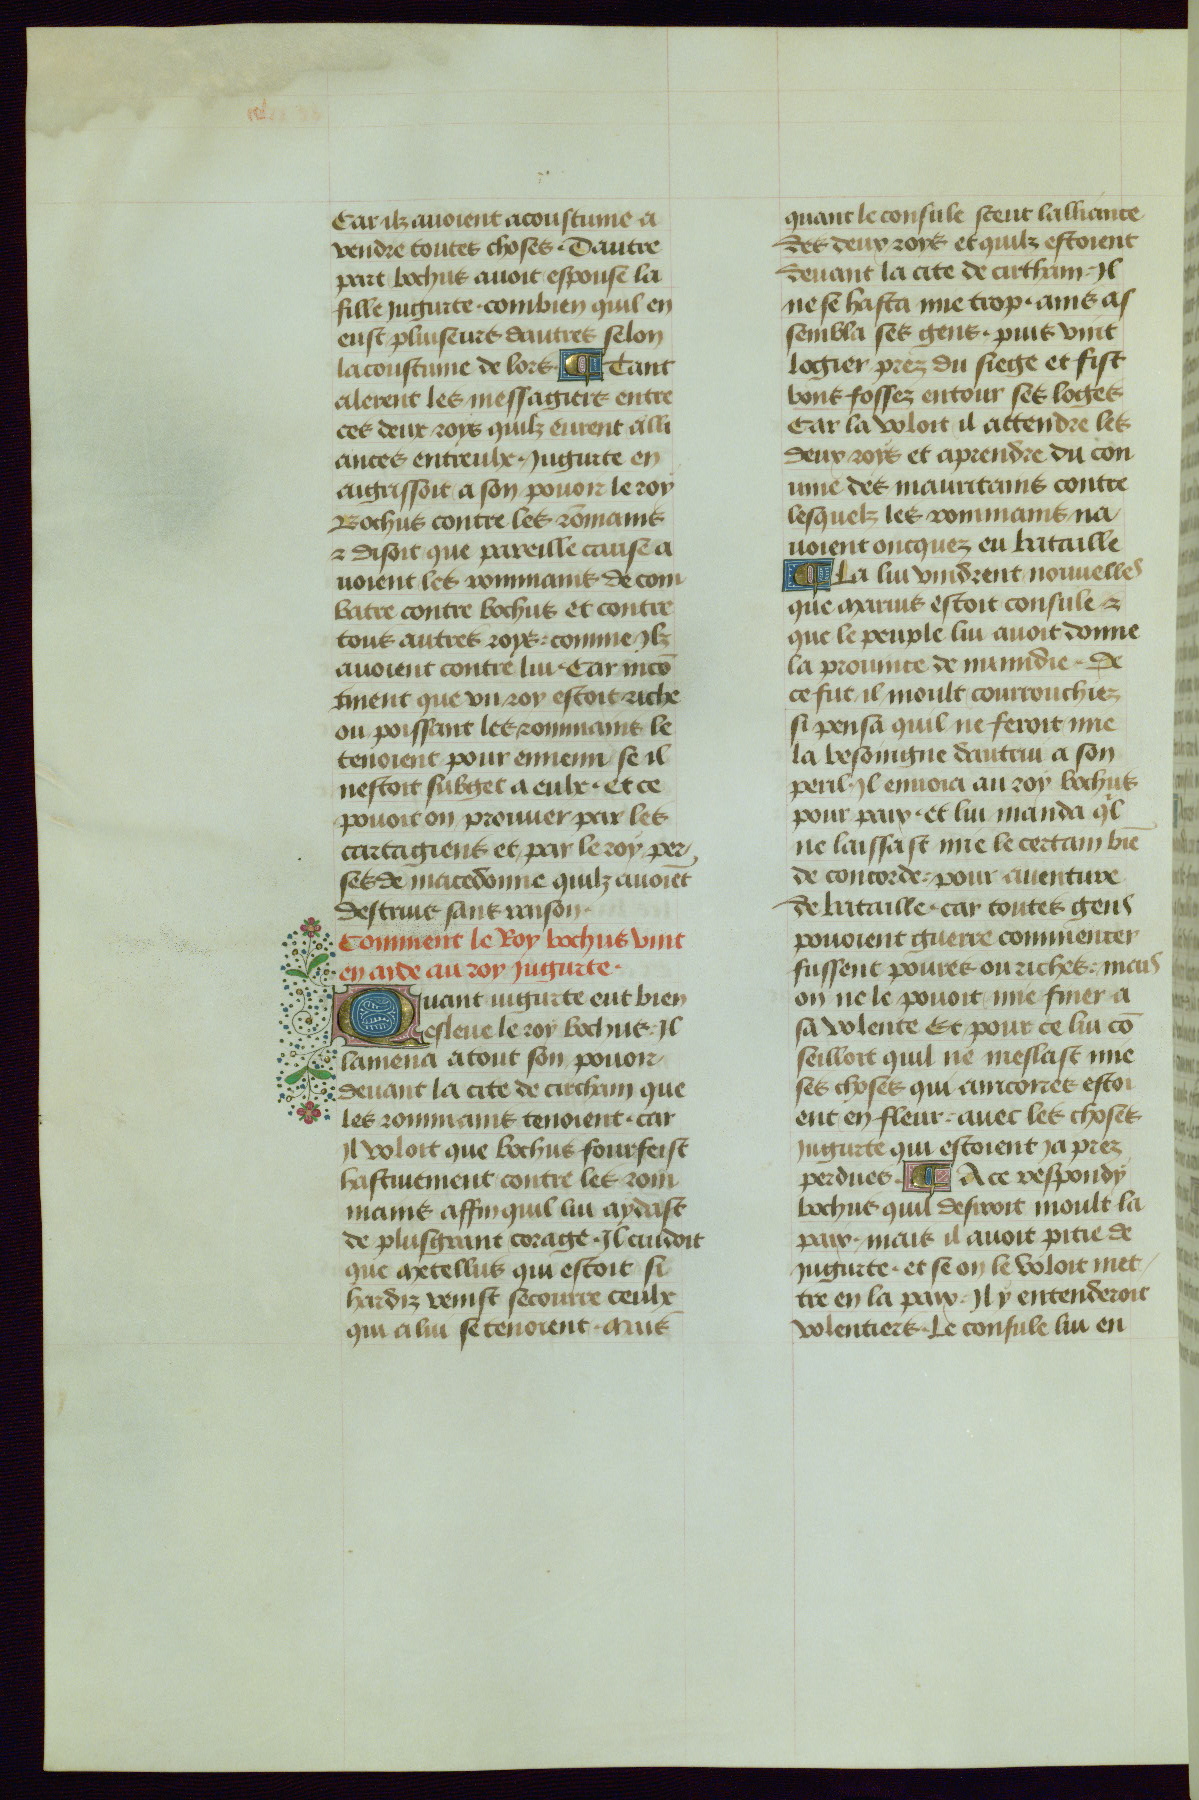 Car ilz auoient acoustume a
vendre toutes choses · Dautre
part bochus auoit espouse la
fille jugurte · combien quil en
eust pluiseurs dautres selon
la coustume de lors · Tant
alerent les messagiers entre
ces deux roys quilz eurent alli
ances entreulx · jugurte en
aigrissoit a son pouoir le roy
Bochus contre les rōmains
⁊ disoit que pareille cause a
uoient les rommains de com
batre contre bochus et contre
tous autres roys : comme jlz
auoient contre lui · Car incō
tinent que vn roy estoit riche
ou poissant les rommains le
tenoient pour ennemi se il
nestoit subget a eulx · et ce
pouoit on prouuer par les
cartagiens et par le roy per,
ses de macedonne quilz auoiēt
destruis sans raison ·
Comment le Roy bochus vint
en ayde au roy jugurte ·
Quant iugurte eut bien
esleue le roy bochus · Il
lamena a tout son pouoir
deuant la cite de circham que
les rommains tenoient · car
Il voloit que bochus fourfeist
hastiuement contre les rom
mains affin quil lui aydast
de plusgrant corage · Il cuidoit
que metellus qui estoit si
hardiz venist secourre ceulx
qui a lui se tenoient · mais
quant le consule sceut lalliance
des deux roys et quilz estoient
deuant la cite de cirtham · Il
ne se hasta mie trop · ains as
sembla ses gens · puis vint
logier prez du siege et fist
bons fossez entour ses loges
Car la voloit il attendre les
deux roys et aprendre du con
uine des mauritains contre
lesquelz les rommains na
uoient oncquez eu bataille
La lui vindrent nouuelles
que marius estoit consule ⁊
que le peuple lui auoit donne
la prouince de numidie · De
ce fut il moult courrouchiez
si pensa quil ne feroit mie
la besoingne dautrui a son
peril · Il enuoia au roy bochus
pour paix · et lui manda q'l
ne laissast mie le certain biē
de concorde : pour auenture
de bataille · car toutes gens
pouoient guerre commencer
fussent poures ou riches : mais
on ne le pouoit mie finer a
sa volente Et pour ce lui cō
seilloit quil ne meslast mie
ses choses qui aincores estoi
ent en fleur : auec les choses
jugurte qui estoient ja prez
perdues · A ce respondy
bochus quil desiroit moult la
paix · mais il auoit pitie de
jugurte · et se on le voloit met
tre en la paix · Il y entenderoit
volentiers · Le consule lui en